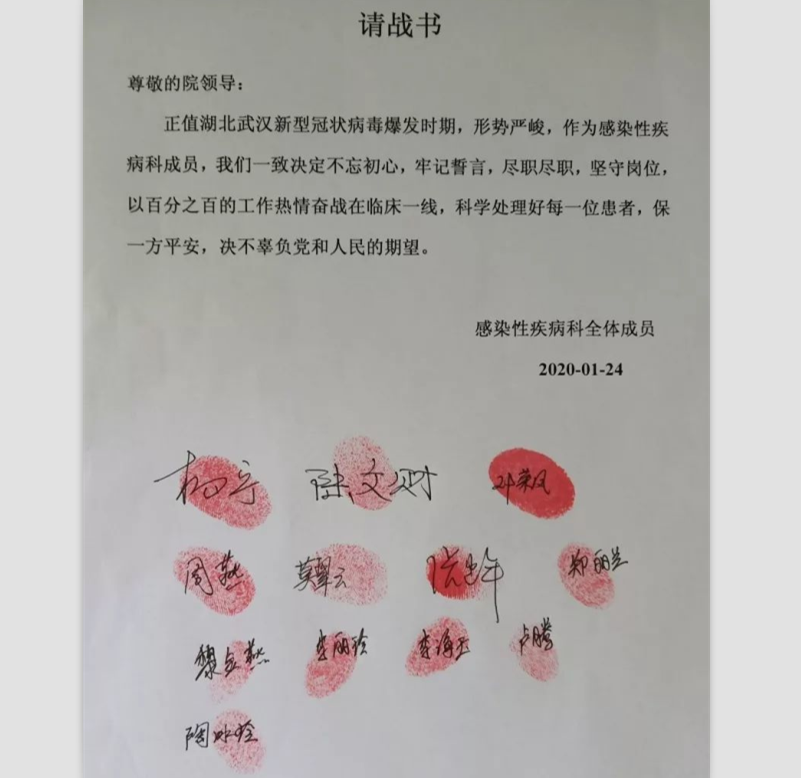 请战书
尊敬的院领导：
正值湖北武汉新型冠状病毒爆发时期，形势严峻，作为感染性疾
病科成员，我们一致决定不忘初心，牢记誓言，尽职尽职，坚守岗位，
以百分之百的工作热情奋战在临床一线，科学处理好每一位患者，保
一方平安，决不辜负党和人民的期望。
感染性疾病科全体成员
2020-01-24
杨宁 陆文财 邓荣凤
周燕 莫翠云 郑丽兰
黎金燕 李丽玲 李海玉 卢腾
陶